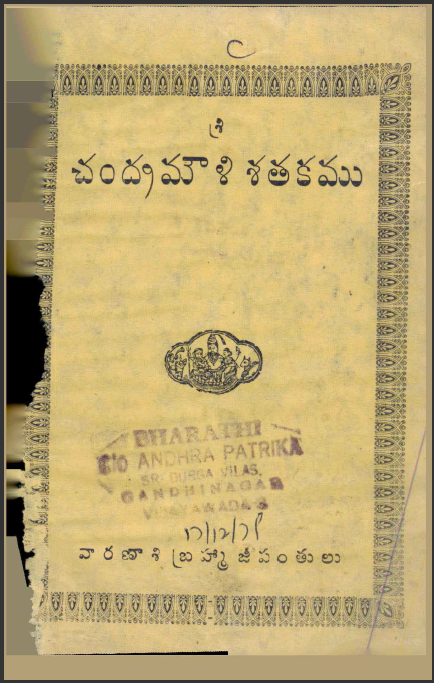 శ్రీ
చంద్రమౌళి శతకము
BHARATHI
C/O ANDHRA PATRIKA
SRI DURGA VILAS,
GANDHINAGAR
VIJAYAWADA-3
వారణాశి బ్రహ్మాజీపంతులు